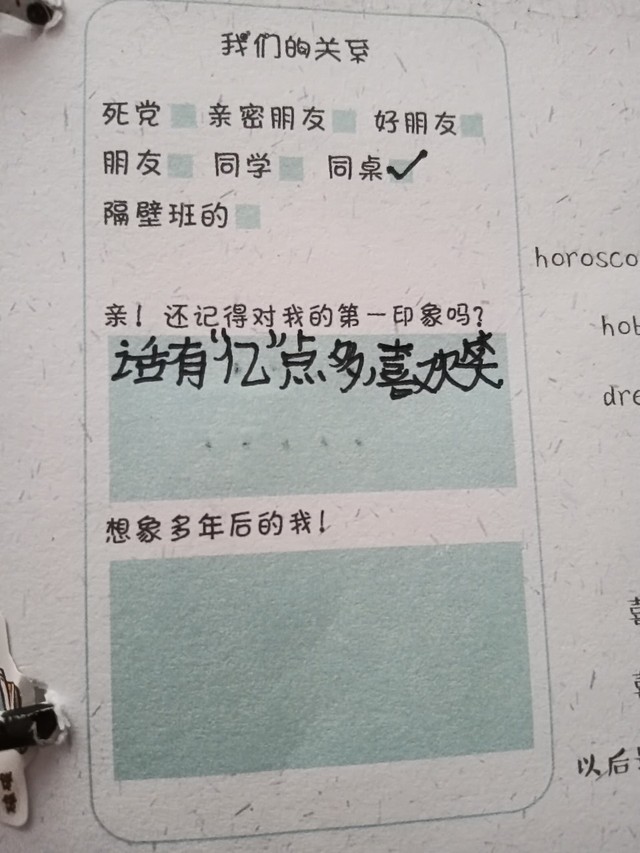 我们的关系
死党 亲密朋友 好朋友
朋友 同学 同桌✓
隔壁班的
亲！还记得对我的第一印象吗？
话有“亿”点多,喜欢笑
想象多年后的我！
horosco
hob
dre
喜
以后